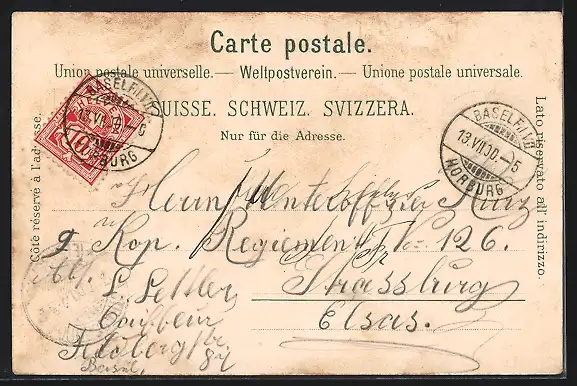 Carte postale.
Union postale universelle. — Weltpostverein. — Unione postale universale.
SUISSE. SCHWEIZ. SVIZZERA.
Nur für die Adresse.
Côté réservé à l'adresse.
Lato riservato all' indirizzo.
10
BASEL FIL.
HORBURG
BASEL FIL.
13.VII.00.–5
HORBURG
Herrn Unteroffizier Kurz
Kop. Regiement No 126.
Strassburg
Elsas.
Abs. L. Lettler
Coiffeur
84
Basel,